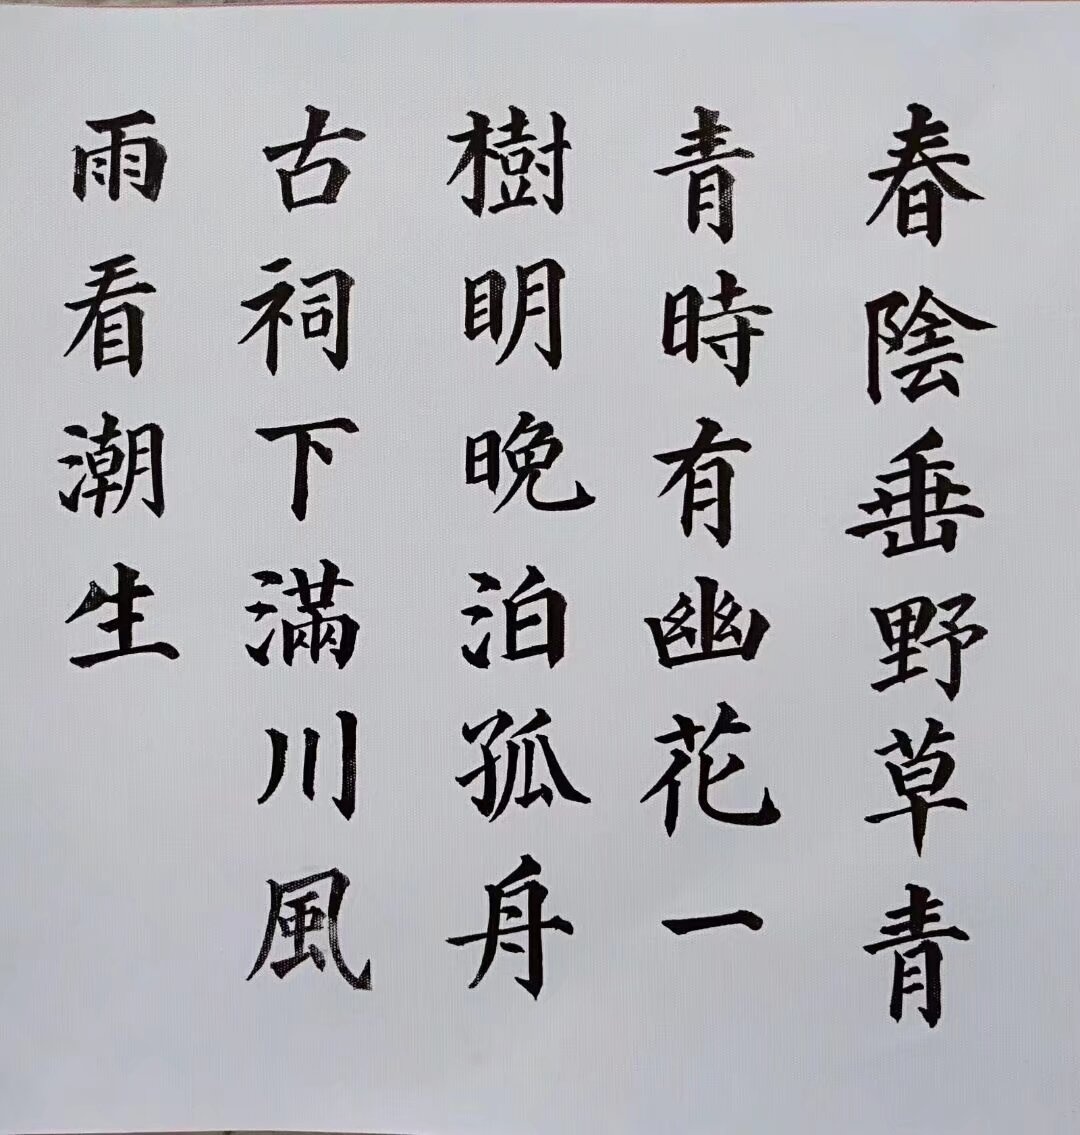 春陰垂野草青
青時有幽花一
樹明晚泊孤舟
古祠下滿川風
雨看潮生